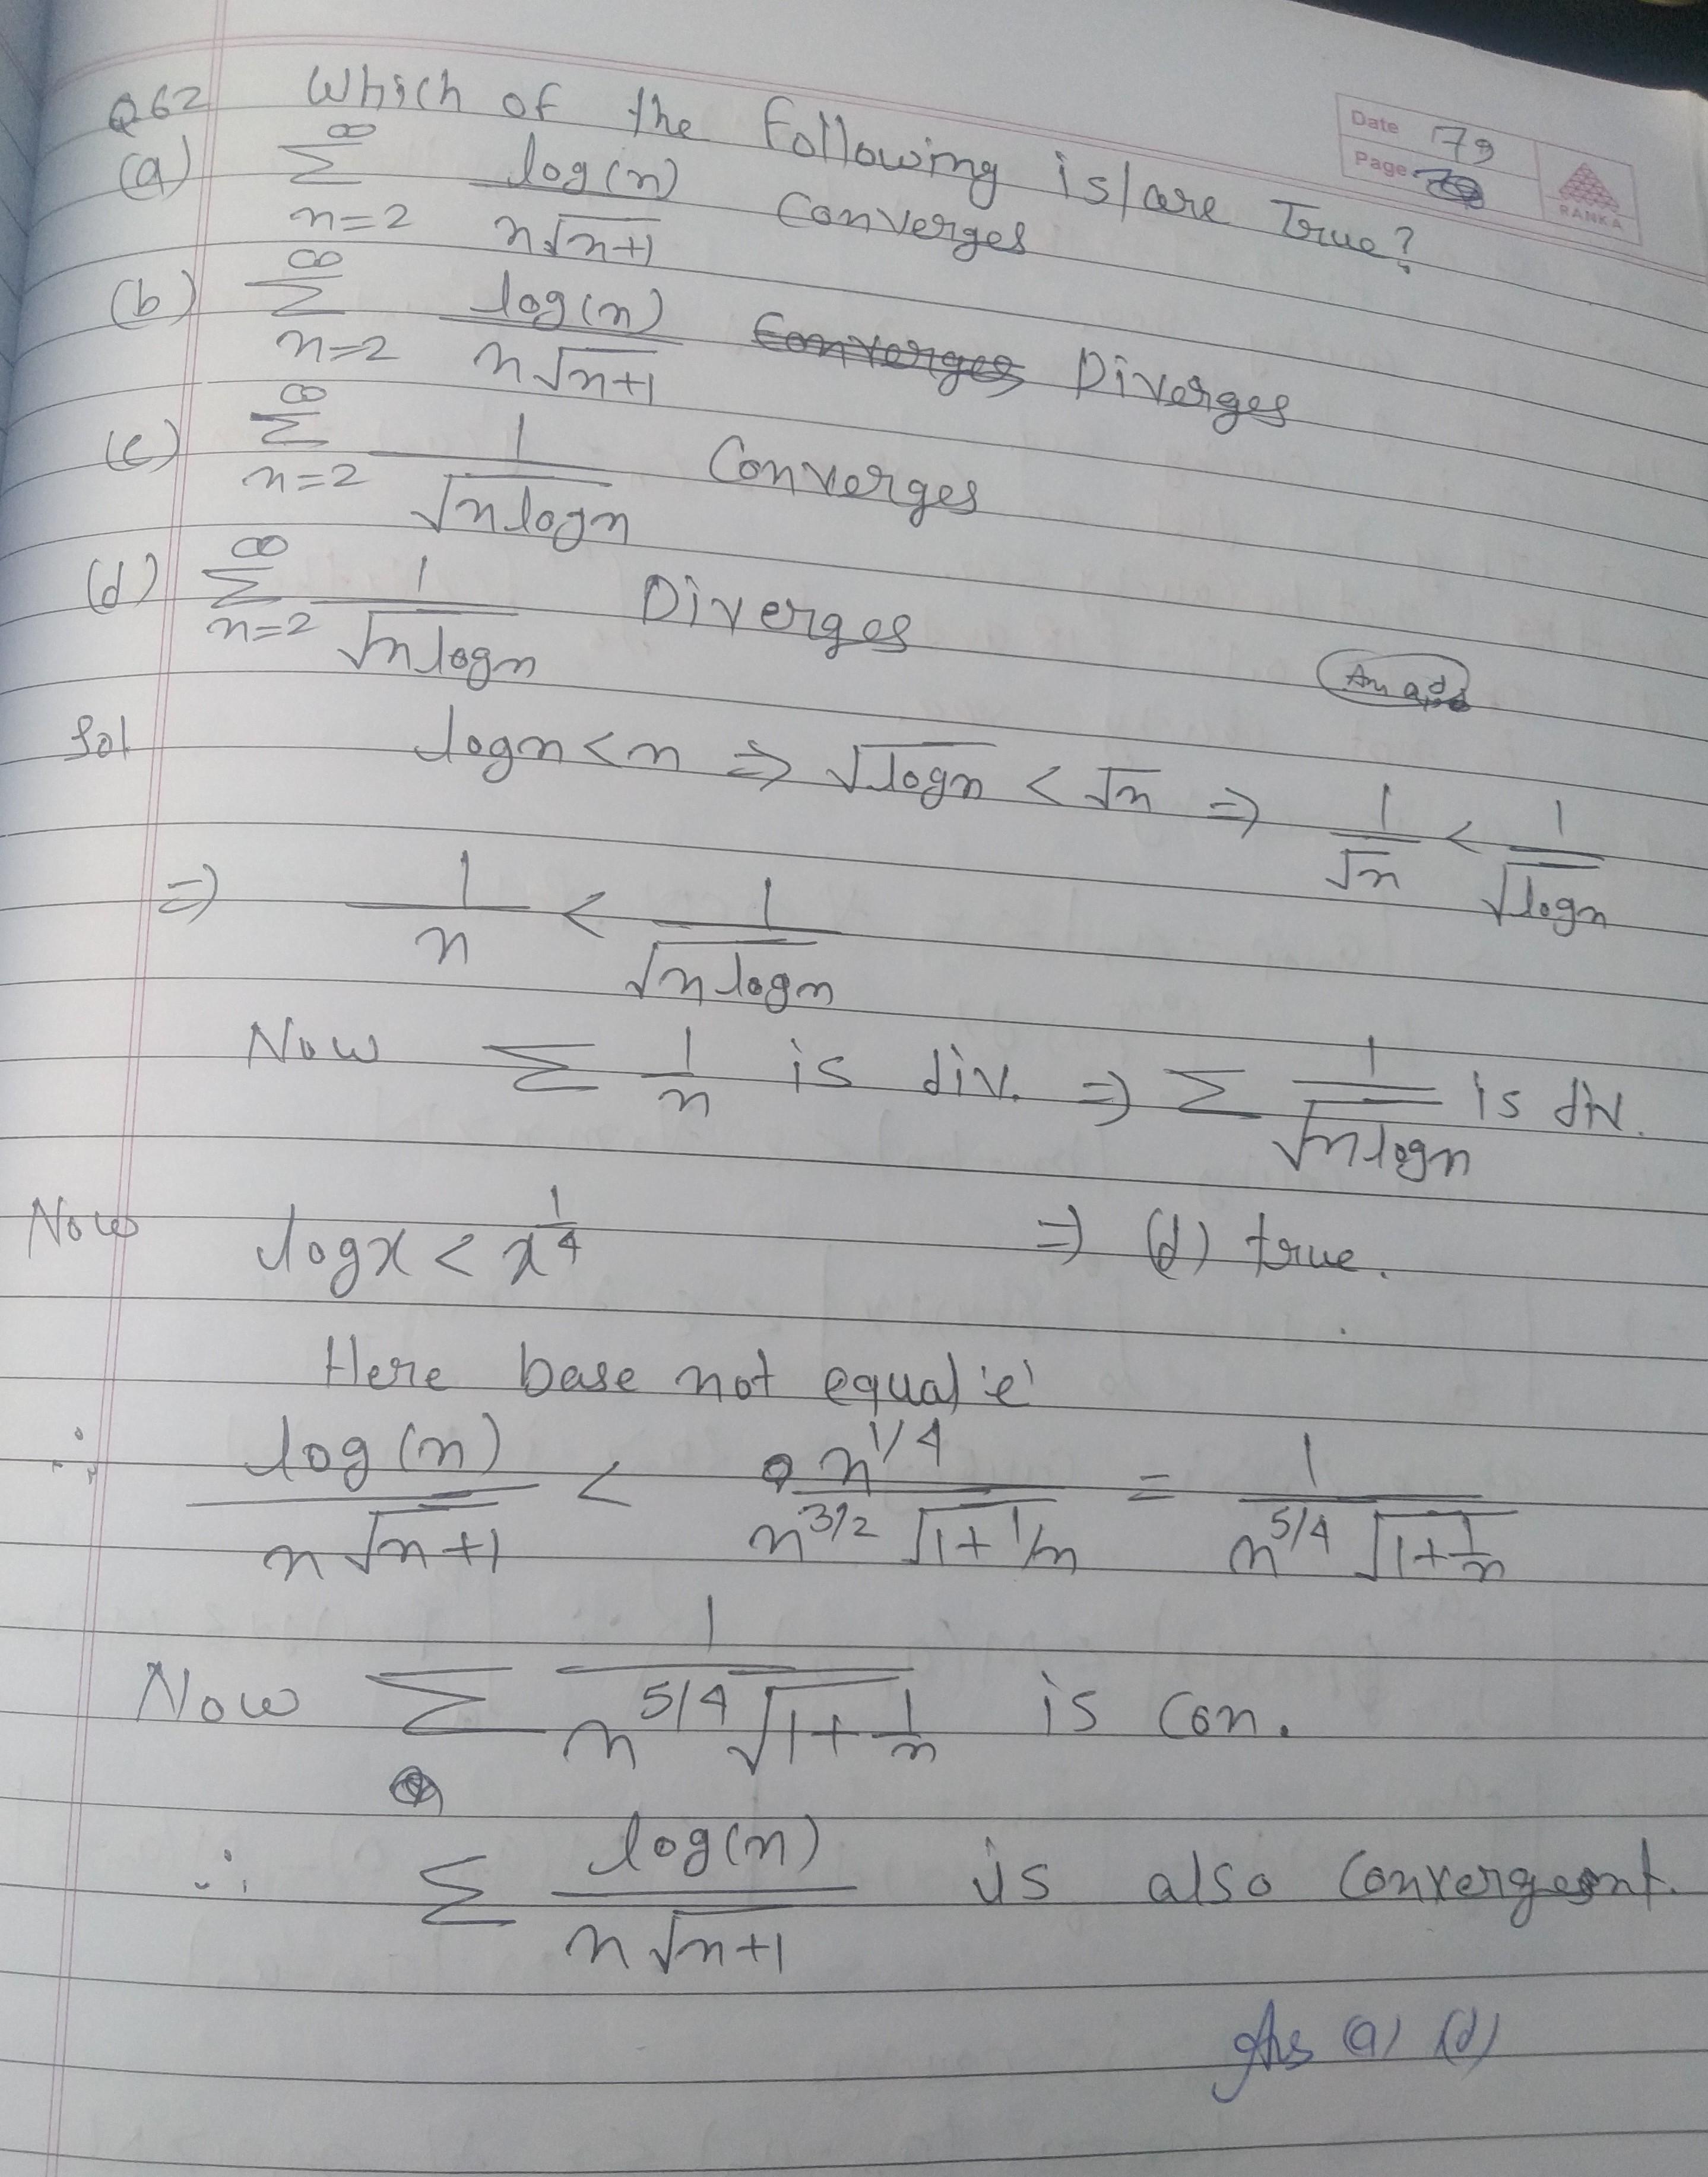 Date 79
Page
RANKA
Q62 Which of the Following is/are True?
(a) ∞∑n=2 log(n)/n√(n+1) Converges
(b) ∞∑n=2 log(n)/n√(n+1) Diverges
(c) ∞∑n=2 1/√(n logn) Converges
(d) ∞∑n=2 1/√(n logn) Diverges
Sol logn < n ⇒ √logn < √n ⇒ 1/√n < 1/√logn
⇒ 1/n < 1/√(n logn)
Now ∑ 1/n is div. ⇒ ∑ 1/√(n logn) is div.
Now logx < x^(1/4) ⇒ (d) true.
Here base not equal 'e'
∴ log(n)/n√(n+1) < n^(1/4)/n^(3/2)√(1+1/n) = 1/n^(5/4)√(1+1/n)
Now ∑ 1/n^(5/4)√(1+1/n) is con.
∴ ∑ log(n)/n√(n+1) is also Convergent.
Ans (a) (d)